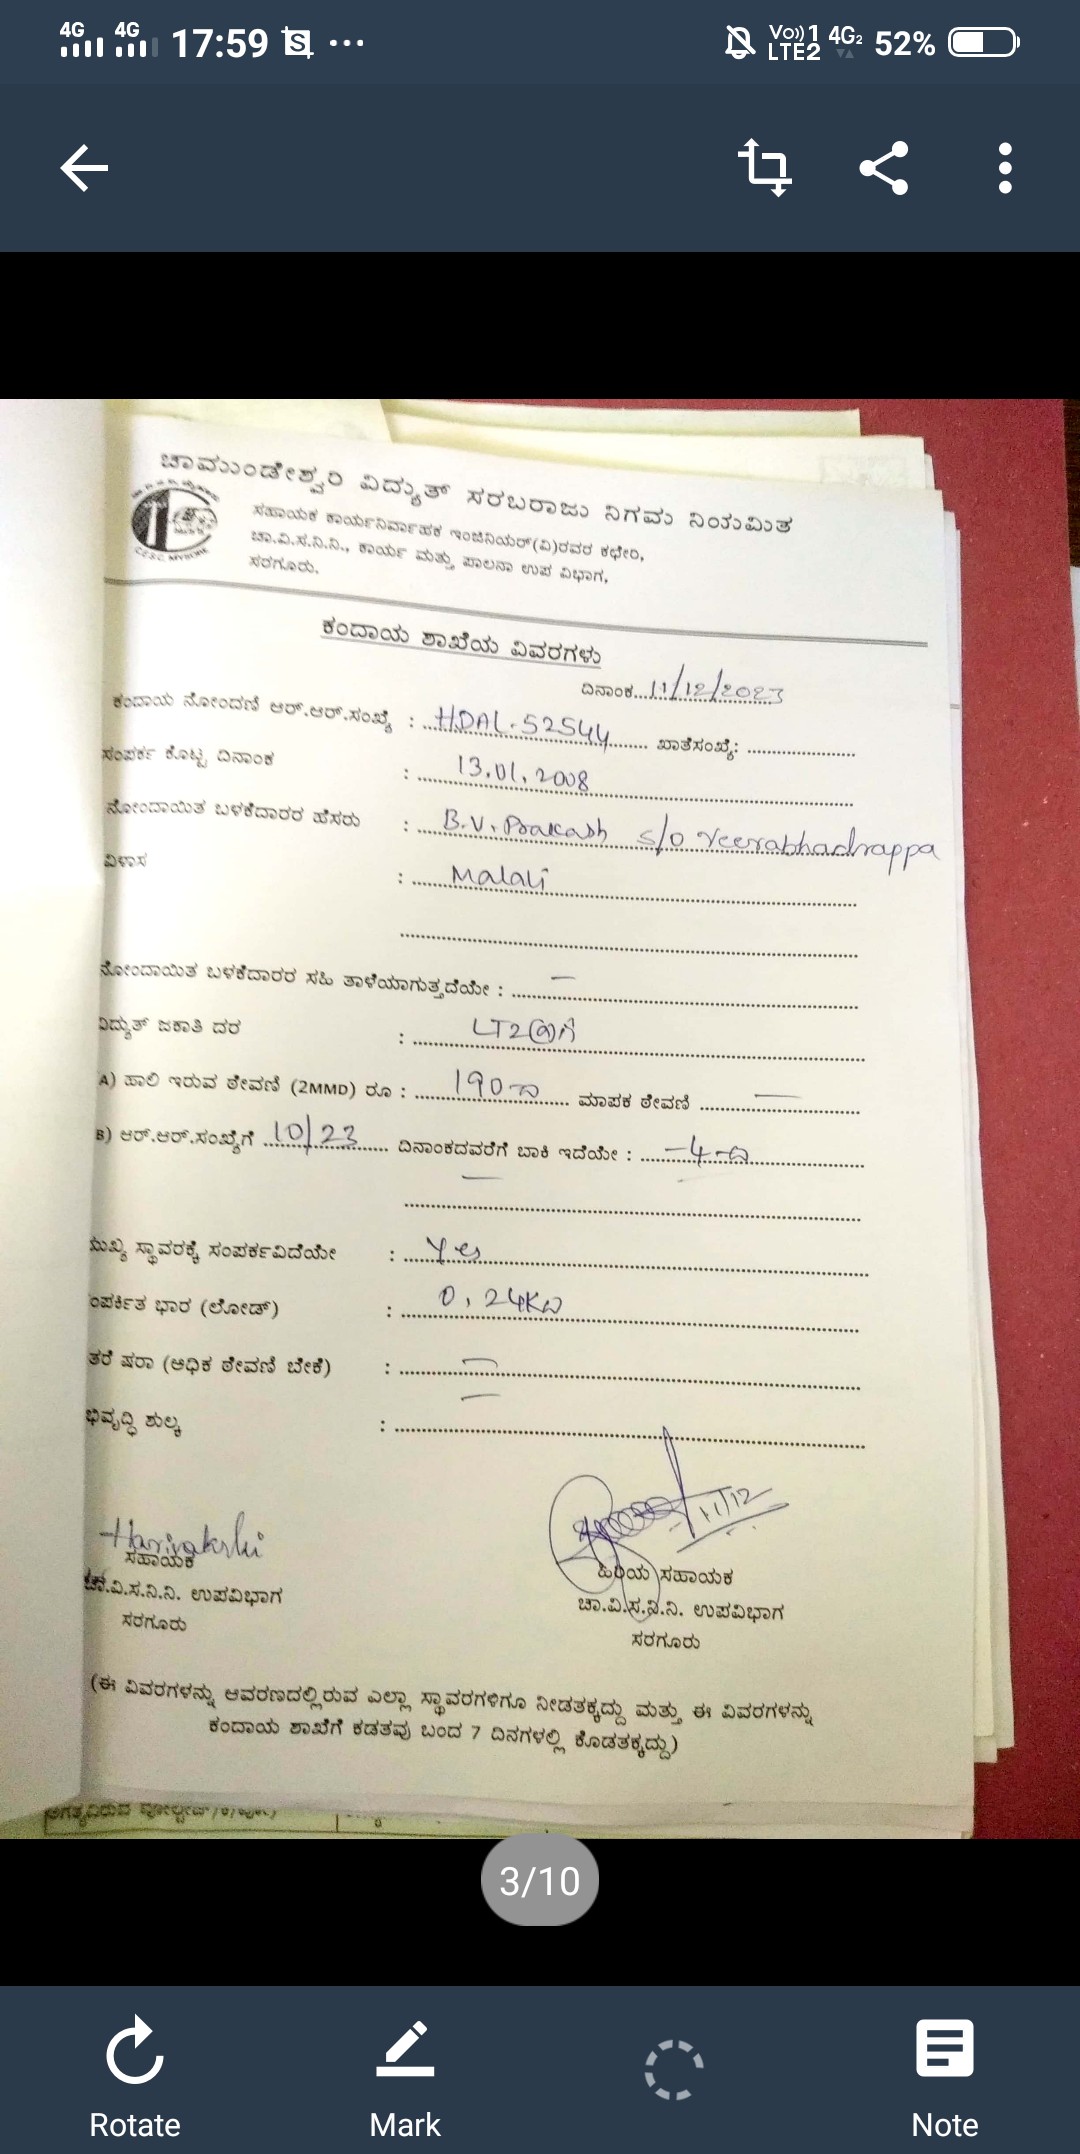 4G 4G 17:59 Vo)) 1 LTE2 4G2 52%
ಚಾಮುಂಡೇಶ್ವರಿ ವಿದ್ಯುತ್ ಸರಬರಾಜು ನಿಗಮ ನಿಯಮಿತ
ಸಹಾಯಕ ಕಾರ್ಯನಿರ್ವಾಹಕ ಇಂಜಿನಿಯರ್(ವಿ)ರವರ ಕಛೇರಿ,
ಚಾ.ವಿ.ಸ.ನಿ.ನಿ., ಕಾರ್ಯ ಮತ್ತು ಪಾಲನಾ ಉಪ ವಿಭಾಗ,
ಸರಗೂರು.
ಕಂದಾಯ ಶಾಖೆಯ ವಿವರಗಳು
ದಿನಾಂಕ...11/12/2023
ಕಂದಾಯ ನೋಂದಣಿ ಆರ್.ಆರ್.ಸಂಖ್ಯೆ : HDAL-52544 ಖಾತೆಸಂಖ್ಯೆ:
ಸಂಪರ್ಕ ಕೊಟ್ಟ ದಿನಾಂಕ : 13.01.2008
ನೋಂದಾಯಿತ ಬಳಕೆದಾರರ ಹೆಸರು : B.V. Prakash s/o Veerabhadrappa
ವಿಳಾಸ : Malali
ನೋಂದಾಯಿತ ಬಳಕೆದಾರರ ಸಹಿ ತಾಳೆಯಾಗುತ್ತದೆಯೇ : —
ವಿದ್ಯುತ್ ಜಕಾತಿ ದರ : LT2(a)
A) ಹಾಲಿ ಇರುವ ಠೇವಣಿ (2MMD) ರೂ : 190 ಮಾಪಕ ಠೇವಣಿ —
B) ಆರ್.ಆರ್.ಸಂಖ್ಯೆಗೆ 10/23 ದಿನಾಂಕದವರೆಗೆ ಬಾಕಿ ಇದೆಯೇ : -4
—
ಮುಖ್ಯ ಸ್ಥಾವರಕ್ಕೆ ಸಂಪರ್ಕವಿದೆಯೇ : Yes
ಂಪರ್ಕಿತ ಭಾರ (ಲೋಡ್) : 0.24KW
ತರೆ ಷರಾ (ಆಧಿಕ ಠೇವಣಿ ಬೇಕೆ) : —
ಭಿವೃದ್ಧಿ ಶುಲ್ಕ : —
11/12
ಸಹಾಯಕ ಹಿರಿಯ ಸಹಾಯಕ
ಚಾ.ವಿ.ಸ.ನಿ.ನಿ. ಉಪವಿಭಾಗ ಚಾ.ವಿ.ಸ.ನಿ.ನಿ. ಉಪವಿಭಾಗ
ಸರಗೂರು ಸರಗೂರು
(ಈ ವಿವರಗಳನ್ನು ಆವರಣದಲ್ಲಿರುವ ಎಲ್ಲಾ ಸ್ಥಾವರಗಳಿಗೂ ನೀಡತಕ್ಕದ್ದು ಮತ್ತು ಈ ವಿವರಗಳನ್ನು
ಕಂದಾಯ ಶಾಖೆಗೆ ಕಡತವು ಬಂದ 7 ದಿನಗಳಲ್ಲಿ ಕೊಡತಕ್ಕದ್ದು)
3/10
Rotate Mark Note